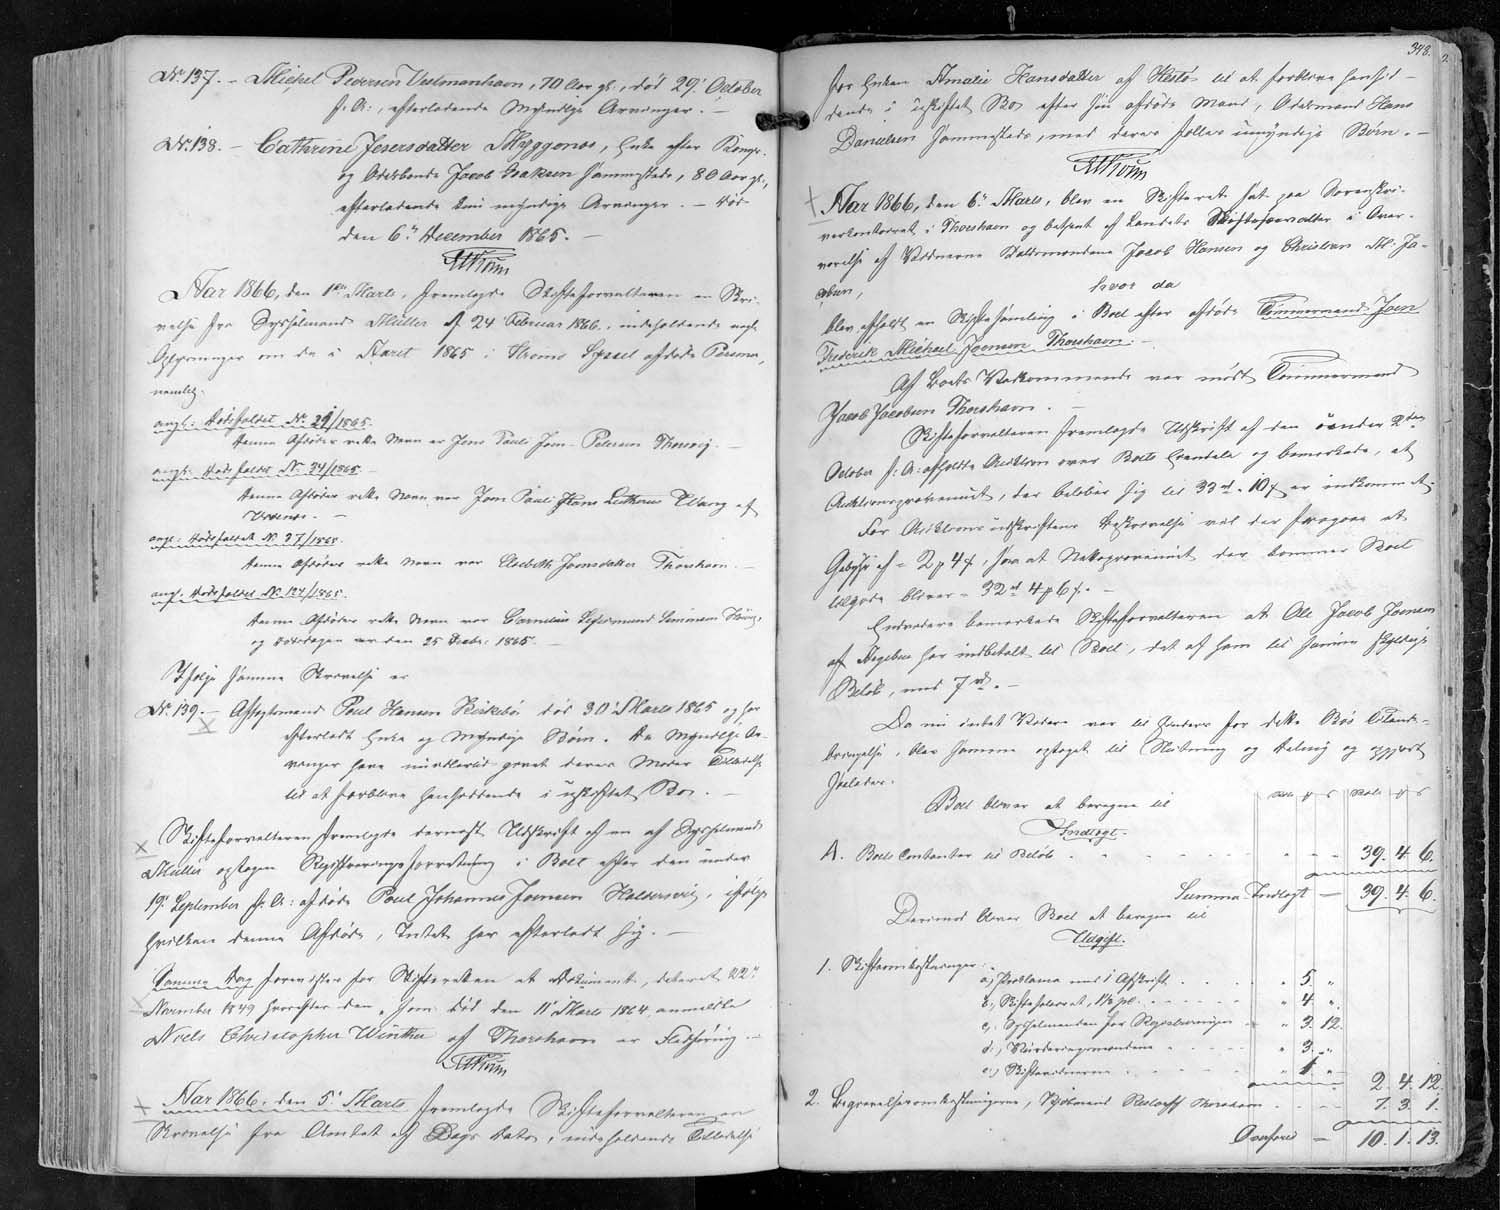 No 137. – Michel Pedersen Vestmanhavn, 70 Aar gl., død 29' October
f. A., efterladende myndige Arvinger. –
No 138. – Cathrine Jesersdatter Myggenæs, Enke efter Konge-
og Odelsbonde Jacob Isaksen sammesteds, 80 Aar gl.,
efterladende kun myndige Arvinger. – død
den 6' December 1865. –
Aar 1866, den 1ste Marts, fremlagde Skifteforvalteren en Skri-
velse fra Sysselmand Müller af 24' Februar 1866, indeholdende
Oplysninger om de i Aaret 1865 i Strømø Syssel afdøde Personer,
nemlig.
angl: Dødsfaldet No. 21/1865.
denne Afdødes rette Navn er Jens Pauli Joen Petersen Thorsvig. –
angl: Dødsfaldet No. 34/1865. –
denne Afdødes rette Navn var Joen Pauli Hans Lutherus Wang af
angl: Dødsfaldet No. 37/1865.
denne Afdødes rette Navn var Elsebeth Joensdatter Thorshavn. –
angl: Dødsfaldet No. 124/1865.
denne Afdødes rette Navn var Cornelius Simonsen
og Dødsdagen var den 25 Decbr. 1865. –
Ifølge samme Skrivelse er
No. 139. – Aftægtsmand Poul Hansen Kirkebø død 30' Marts 1865 og har
efterladt Enke og myndige Børn. De myndige Ar-
vinger have imidlertid givet deres Moder Tilladelse
til at forblive hensiddende i uskiftet Bo. –
Skifteforvalteren fremlagde dernæst Udskrift af en af Sysselmand
Müller optagen Registreringsforretning i Boet efter den under
19' September f. A. afdøde Poul Johannes Joensen Haldersvig, ifølge
hvilken denne Afdøde, Intet har efterladt sig. –
Samme Dag forevistes for Skifteretten et Dokument, dateret 22'
November 1849 hvorefter den, som død den 11' Marts 1864 anmeldte
Niels Christopher Winther af Thorshavn er Fledføring. –
Aar 1866, den 5' Marts fremlagde Skifteforvalteren en
Skrivelse fra Amtet af Dags Dato, indeholdende Tilladelse
348.
for Enken Amalie Hansdatter af Hestø til at forblive hensid-
dende i uskiftet Bo efter sin afdøde Mand, Odelsmand Hans
Danielsen sammesteds, med deres fælles umyndige Børn. –
Aar 1866, den 6' Marts, blev en Skifteret sat paa Sorenskri-
verkontoret i Thorshavn og betjent af Landets Skifteforvalter i Over-
værelse af Vidnerne Dalsmændene Jacob Hansen og Christian M. Ja-
cobsen,
hvor da
blev afholdt en Skiftesamling i Boet efter afdøde Tømmermand Joen
Frederik Michael Joensen Thorshavn. –
Af Boets Vedkommende var mødt Tømmermand
Jacob Jacobsen Thorshavn. –
Skifteforvalteren fremlagde Udskrift af den under 2den
October f. A. afholdte Auktion over Boets Eiendele og bemærkede, at
Auktionsprovenuet, der beløber sig til 33 rd. – 10 s er indkommet.
For Auktionsudskriftens Beskrivelse vil der fragaae et
Gebyr af – 2 p 4 s, saa at Nettoprovenuet der kommer Boet
tilgode bliver – 32 rd 4 p 6 s. –
Endvidere bemærkede Skifteforvalteren at Ole Jacob Joensen
af har indbetalt til Boet, det af ham til samme skyldige
Beløb, med 7 rd. –
Da nu intet Videre var til Hinder for dette Bos Tilende-
bringelse, blev samme optaget til Slutning og Deling og opgjort
saaledes.
Boet bliver at beregne til
Indtægt.
A. Boets Contanter til Beløb . . . . 39. 4. 6.
Summa Indtægt – 39. 4. 6.
Derimod bliver Boet at beregne til
Udgift.
1. Skifteomkostninger:
a.) Proclama med 1 Afskrift . . . . " 5. "
b.) Skiftesalarat, 1½ pC. . . . . " 4. "
c.) Sysselmanden for Registreringen – " 3. 12.
d.) Vurderingsmændene . . . . " 3. "
e.) Skiftevidnerne . . . . " 1. "
2. 4. 12.
2. Begravelsesomkostningerne, Kjøbmand Restorff Thorshavn . . . 7. 3. 1.
Overføres – 10. 1. 13.